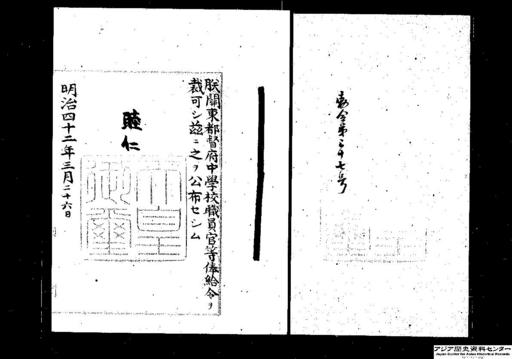 勅令第三十七号
朕關東都督府中學校職員官等俸給令ヲ
裁可シ茲ニ之ヲ公布セシム
睦仁
天皇
御璽
明治四十二年三月二十六日
アジア歴史資料センター
Japan Center for Asian Historical Records